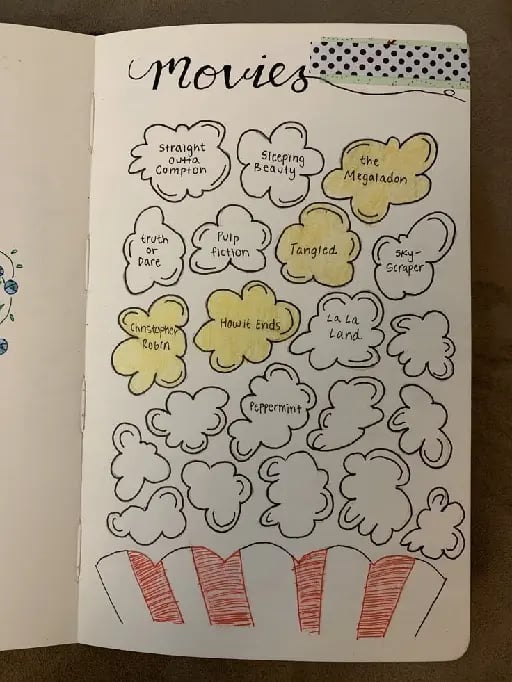 Movies
Straight
outta
Compton
Sleeping
Beauty
the
Megaladon
truth
or
Dare
Pulp
fiction
Tangled
Sky-
Scraper
Christopher
Robin
How it Ends
La La
Land
Peppermint